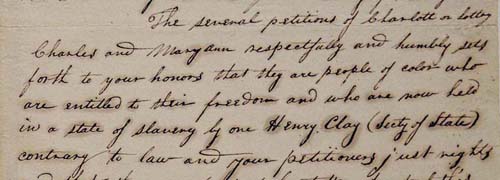 The several petitions of Charlott or Lottey
Charles and Maryann respectfully and humbly sets
forth to your honors that they are people of color who
are entitled to their freedom and who are now held
in a state of slavery by one Henry Clay (Secty of State)
contrary to law and your petitioners just rights